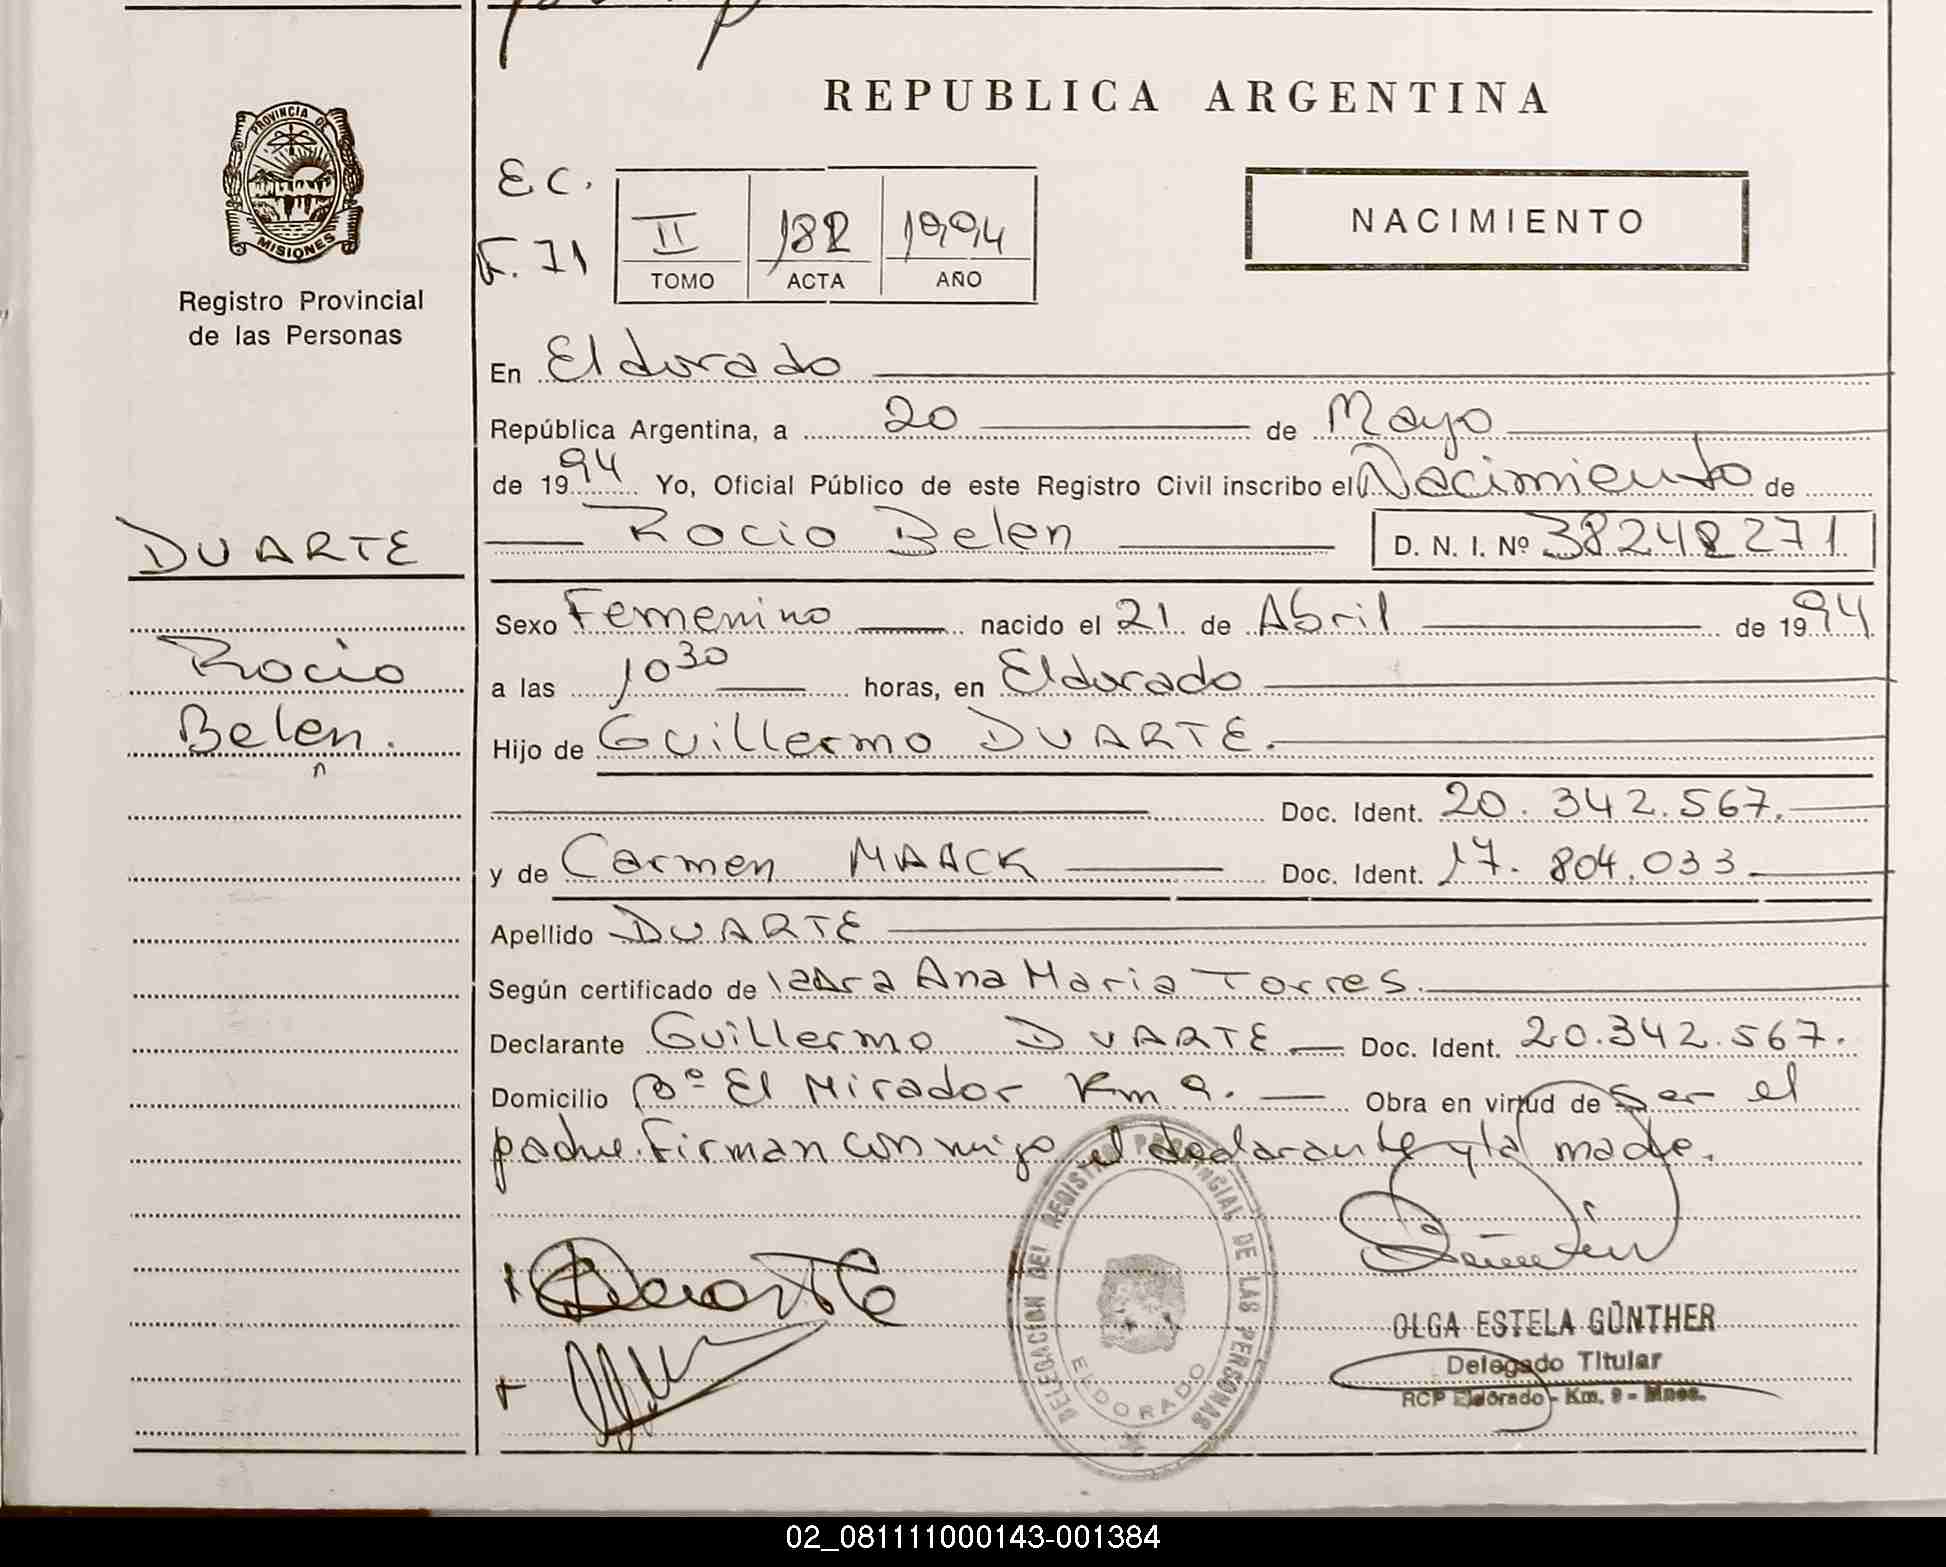 PROVINCIA DE
MISIONES
Registro Provincial
de las Personas
DUARTE
Rocio
Belen.
REPUBLICA ARGENTINA
EC.
F. 71
II 182 1994
TOMO ACTA AÑO
NACIMIENTO
En Eldorado
República Argentina, a 20 de Mayo
de 1994 Yo, Oficial Público de este Registro Civil inscribo el Nacimiento de
Rocio Belen D. N. I. Nº 38248271
Sexo Femenino nacido el 21 de Abril de 1994
a las 10 30 horas, en Eldorado
Hijo de Guillermo DUARTE.
Doc. Ident. 20.342.567.
y de Carmen MAACK Doc. Ident. 17.804.033
Apellido DUARTE
Según certificado de Ana Maria Torres.
Declarante Guillermo DUARTE Doc. Ident. 20.342.567.
Domicilio Bº El Mirador Km 9. Obra en virtud de ser el
padre. Firman con migo el declarante y la madre.
Duarte
DELEGACION DEL REGISTRO PROVINCIAL DE LAS PERSONAS
ELDORADO
OLGA ESTELA GÜNTHER
Delegado Titular
RCP Eldorado - Km. 9 - Mnes.
02_081111000143-001384